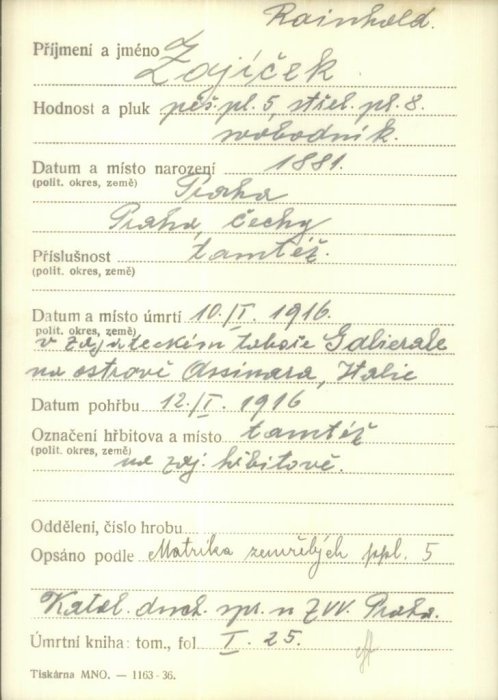 Rainhold.
Příjmení a jméno Zajíček
Hodnost a pluk pěš. pl. 5, střel. pl. 8.
svobodník.
Datum a místo narození 1881.
(polit. okres, země) Praha
Praha, čechy
Příslušnost tamtéž.
(polit. okres, země)
Datum a místo úmrtí 10./I. 1916.
polit. okres, země)
v zajateckém taboře Galierale
na ostrově Assinara, Italie
Datum pohřbu 12./I. 1916
Označení hřbitova a místo tamtéž
(polit. okres, země)
na zaj. hřbitově.
Oddělení, číslo hrobu
Opsáno podle Matrika zemřelých ppl. 5
Katol. duch. spr. u ZVV. Praha.
Úmrtní kniha: tom., fol. I. 25.
Tiskárna MNO. — 1163-36.